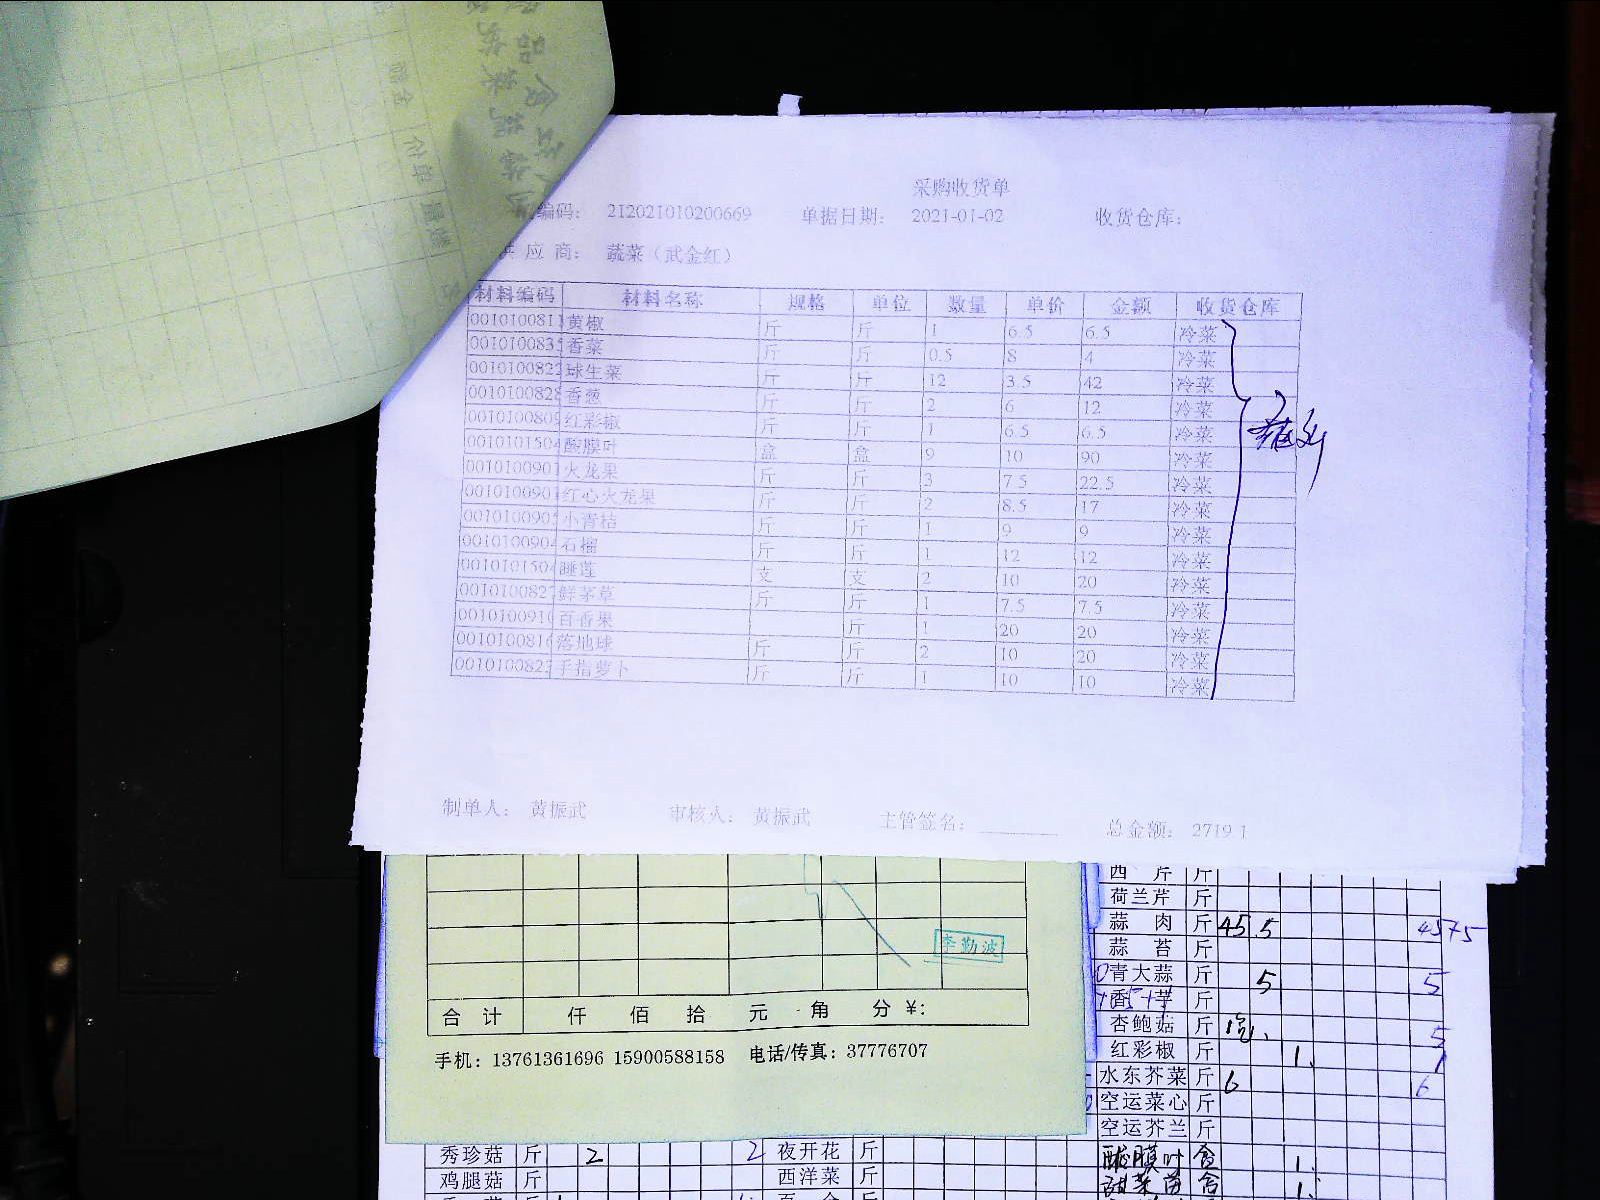 采购收货单
编码： 212021010200669 单据日期： 2021-01-02 收货仓库：
供 应 商： 蔬菜（武金红）
材料编码 材料名称 规格 单位 数量 单价 金额 收货仓库
001010081 黄椒 斤 斤 1 6.5 6.5 冷菜
001010083 香菜 斤 斤 0.5 8 4 冷菜
001010082 球生菜 斤 斤 12 3.5 42 冷菜
001010082 香葱 斤 斤 2 6 12 冷菜
001010080 红彩椒 斤 斤 1 6.5 6.5 冷菜
001010150 酸膜叶 盒 盒 9 10 90 冷菜
001010090 火龙果 斤 斤 3 7.5 22.5 冷菜
001010090 红心火龙果 斤 斤 2 8.5 17 冷菜
001010090 小青桔 斤 斤 1 9 9 冷菜
001010090 石榴 斤 斤 1 12 12 冷菜
001010150 睡莲 支 支 2 10 20 冷菜
001010082 鲜茅草 斤 斤 1 7.5 7.5 冷菜
001010091 百香果 斤 1 20 20 冷菜
001010081 落地球 斤 斤 2 10 20 冷菜
001010082 手指萝卜 斤 斤 1 10 10 冷菜
制单人： 黄振武 审核人： 黄振武 主管签名： 总金额： 2719.1
李勤波
合 计 仟 佰 拾 元 角 分 ¥:
手机：13761361696 15900588158 电话/传真：37776707
西 芹 斤
荷兰芹 斤
蒜 肉 斤 45.5
蒜 苔 斤
青大蒜 斤 5 5
香 芋 斤
杏鲍菇 斤 5
红彩椒 斤 1 1
水东芥菜 斤 6 6
空运菜心 斤
空运芥兰 斤
秀珍菇 斤 2 2 夜开花 斤 酸膜叶 盒 1
鸡腿菇 斤 西洋菜 斤 甜菜苗 盒 1